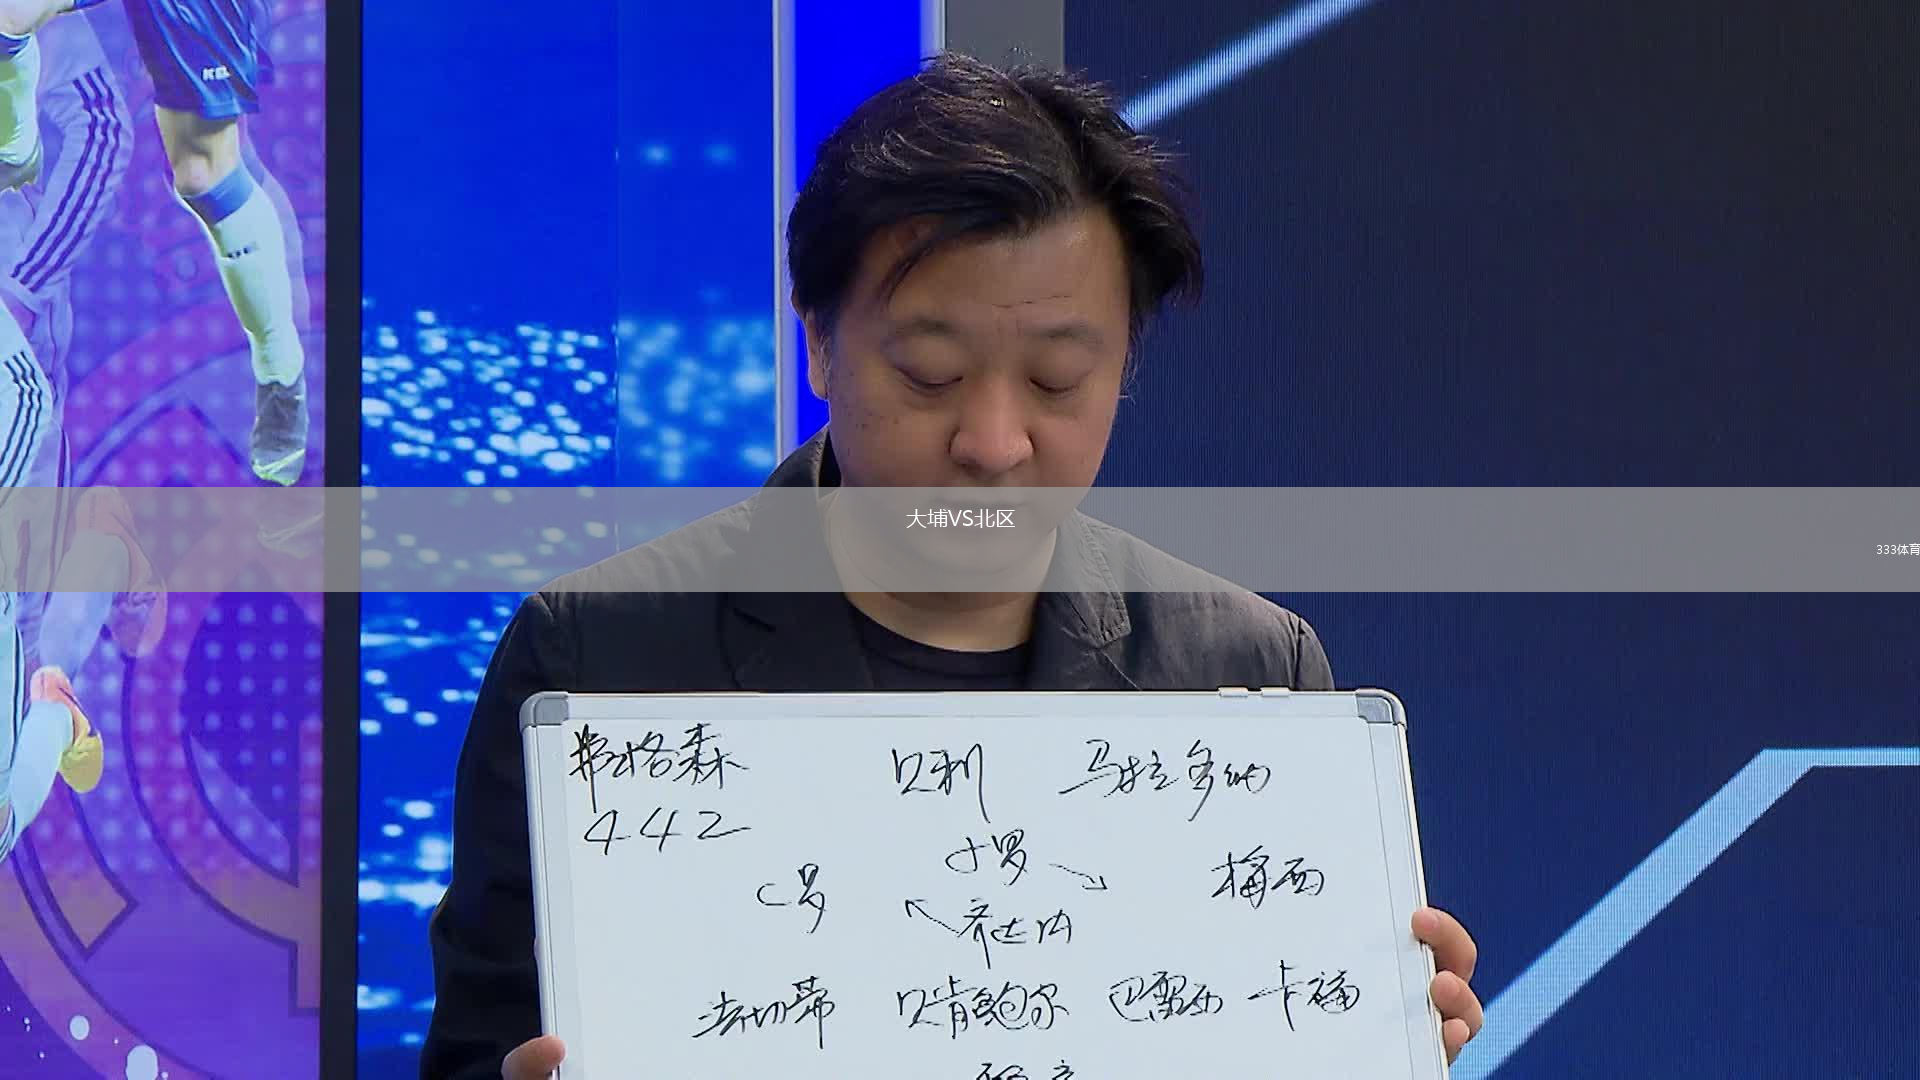 大埔VS北区
333体育
弗格森 贝利 马拉多纳
442
小罗
C罗 梅西
齐达内
法切蒂 贝肯鲍尔 巴雷西 卡福